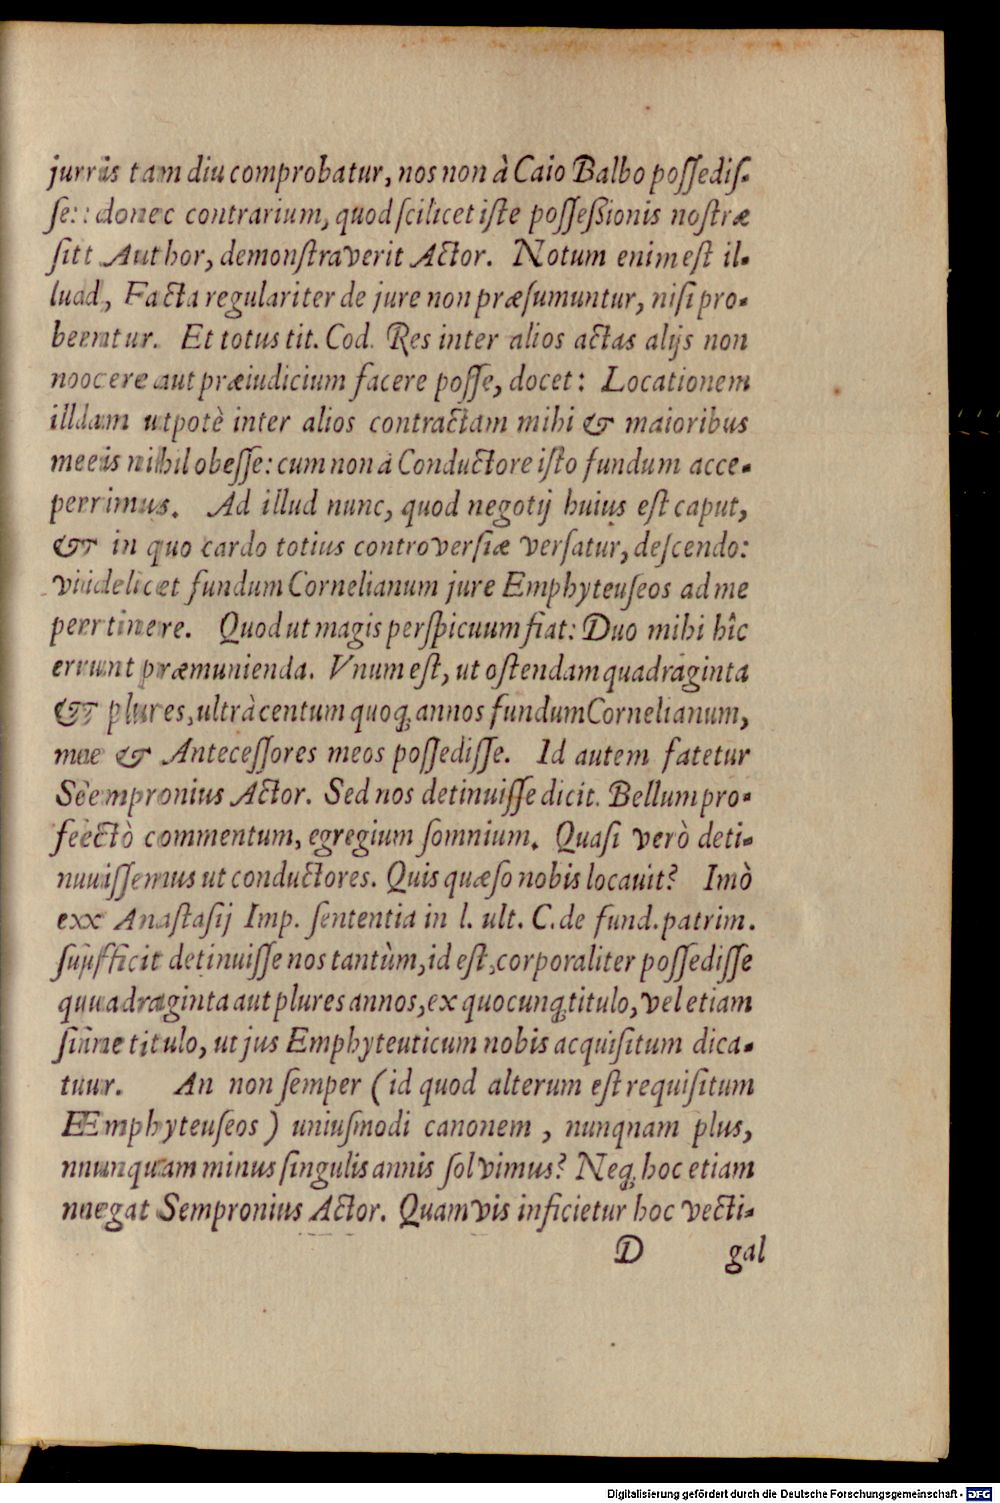 juris tam diu comprobatur, nos non à Caio Balbo possedis-
se: donec contrarium, quod scilicet iste possessionis nostræ
sit Author, demonstraverit Actor. Notum enim est il-
lud, Facta regulariter de jure non præsumuntur, nisi pro-
bentur. Et totus tit. Cod. Res inter alios actas alijs non
nocere aut præiudicium facere posse, docet: Locationem
illam utpotè inter alios contractam mihi & maioribus
meis nihil obesse: cum non à Conductore isto fundum acce-
perimus. Ad illud nunc, quod negotij huius est caput,
& in quo cardo totius controversiæ versatur, descendo:
videlicet fundum Cornelianum jure Emphyteuseos ad me
pertinere. Quod ut magis perspicuum fiat: Duo mihi hîc
erunt præmunienda. Vnum est, ut ostendam quadraginta
& plures, ultrà centum quoq; annos fundum Cornelianum,
me & Antecessores meos possedisse. Id autem fatetur
Sempronius Actor. Sed nos detinuisse dicit. Bellum pro-
fectò commentum, egregium somnium. Quasi verò deti-
nuissemus ut conductores. Quis quæso nobis locavit? Imò
ex Anastasij Imp. sententia in l. ult. C. de fund. patrim.
sufficit detinuisse nos tantùm, id est, corporaliter possedisse
quadraginta aut plures annos, ex quocunq; titulo, vel etiam
sine titulo, ut jus Emphyteuticum nobis acquisitum dica-
tur. An non semper (id quod alterum est requisitum
Emphyteuseos) uniusmodi canonem, nunqnam plus,
nunquam minus singulis annis solvimus? Neq; hoc etiam
negat Sempronius Actor. Quamvis inficietur hoc vecti-
D gal
Digitalisierung gefördert durch die Deutsche Forschungsgemeinschaft - DFG